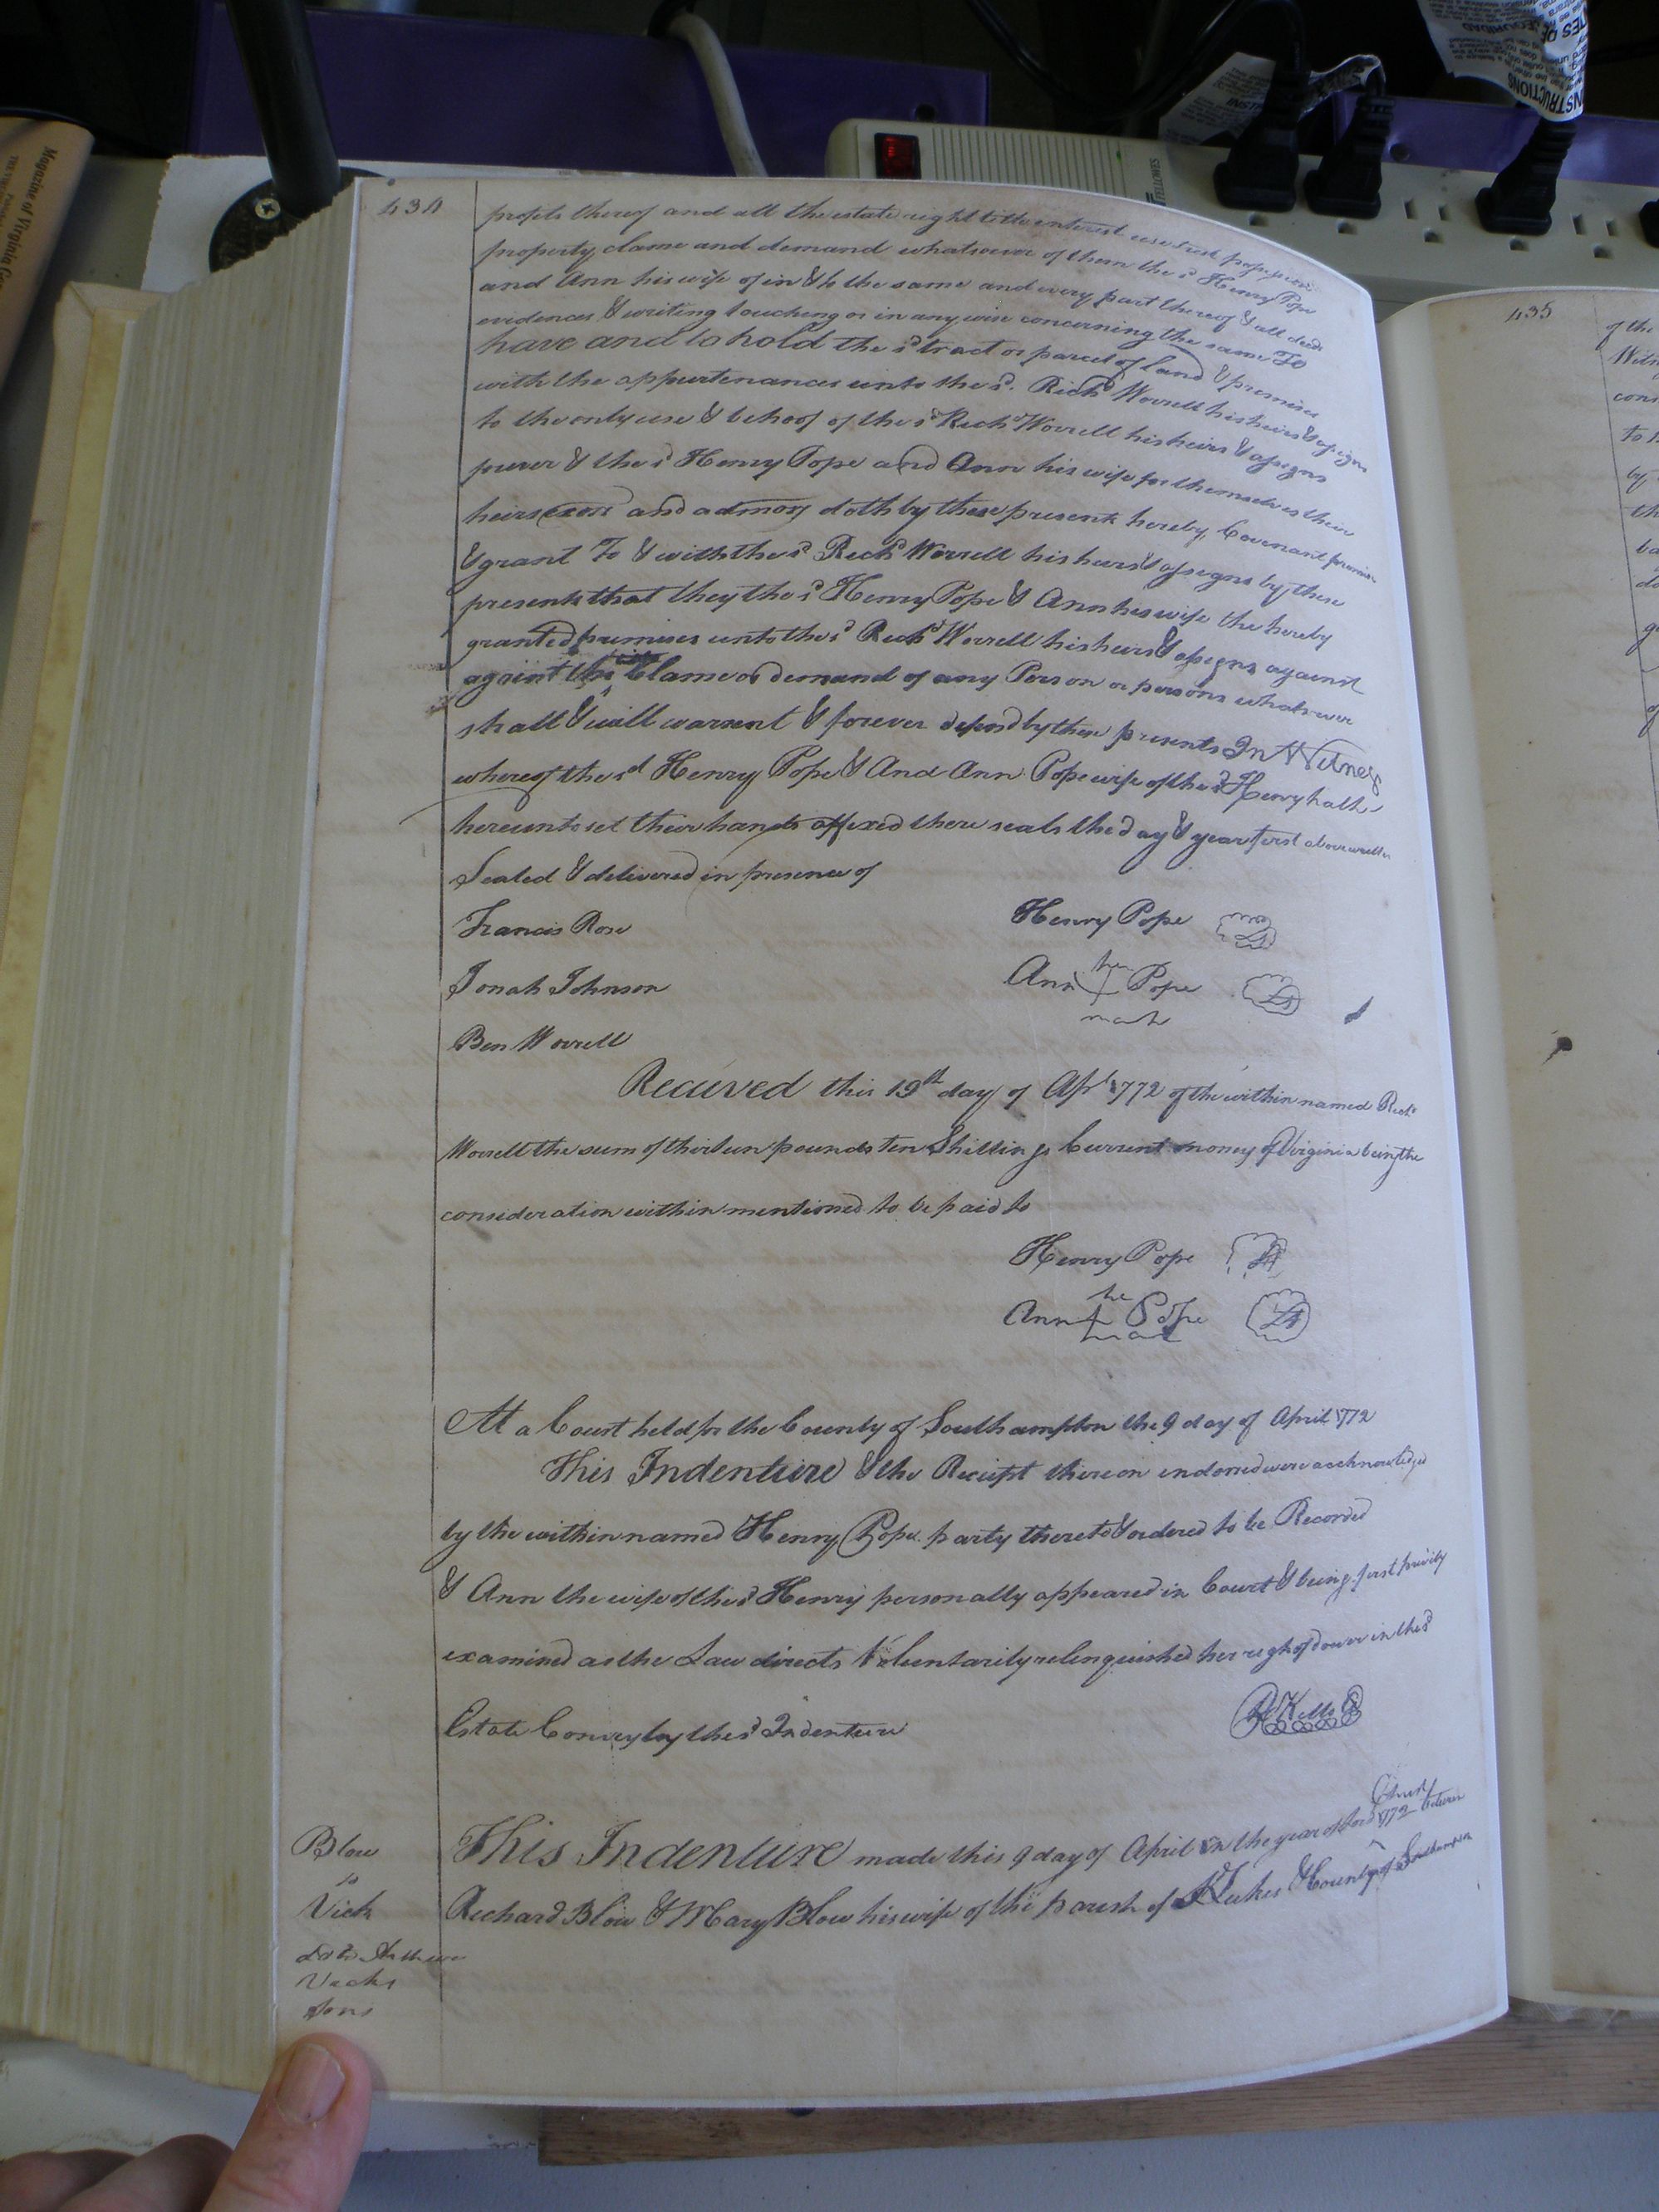 434
profits thereof and all the estate right title interest use trust
property clame and demand whatsoever of them the sd Henry Pope
and Ann his wife of in & to the same and every part thereof & all deeds
evidences & writing touching or in any wise concerning the same To
have and to hold the sd tract or parcel of land & premises
with the appurtenances unto the sd. Richd Worrell his heirs & assigns
to the only use & behoof of the sd Richd Worrell his heirs & assigns
& the sd Henry Pope and Ann his wife for themselves their
heirs exors and admors doth by these presents hereby Covenant promise
& grant To & with the sd Richd Worrell his heirs & assigns by these
presents that they the sd Henry Pope & Ann his wife the hereby
granted premises unto the sd Richd Worrell his heirs & assigns against
against the Clame or demand of any Person or persons whatsoever
shall & will warrent & forever defend by these presents In Witness
whereof the sd Henry Pope & And Ann Pope wife of the sd Henry hath
hereunto set their hands affixed there seals the day & year first above written
Sealed & delivered in presence of
Francis Rose
Henry Pope
Jonah Johnson
Ann her Pope
mark
Ben Worrell
Received this 19th day of Apl 1772 of the within named Richd
Worrell the sum of thirteen pounds ten Shillings Current money of Virginia being the
consideration within mentioned to be paid to
Henry Pope
Ann her Pope
mark
At a Court held for the County of Southampton the 9 day of April 1772
This Indenture & the Reciept thereon endorsed were acknowledged
by the within named Henry Pope party thereto & ordered to be Recorded
& Ann the wife of the sd Henry personally appeared in Court & being first privily
examined as the Law directs Voluntarily relinquished her right of dower in the sd
Estate Convey by the sd Indenture
R Kello
Blow
to
Vick
This Indenture made this 9 day of April in the year of Lord Christ 1772 between
Richard Blow & Mary Blow his wife of the parish of St Lukes & County of Southampton
Vicks
Sons
435
of the
to
by
Magazine of Virginia
FELLOWES
INSTRUCTIONS